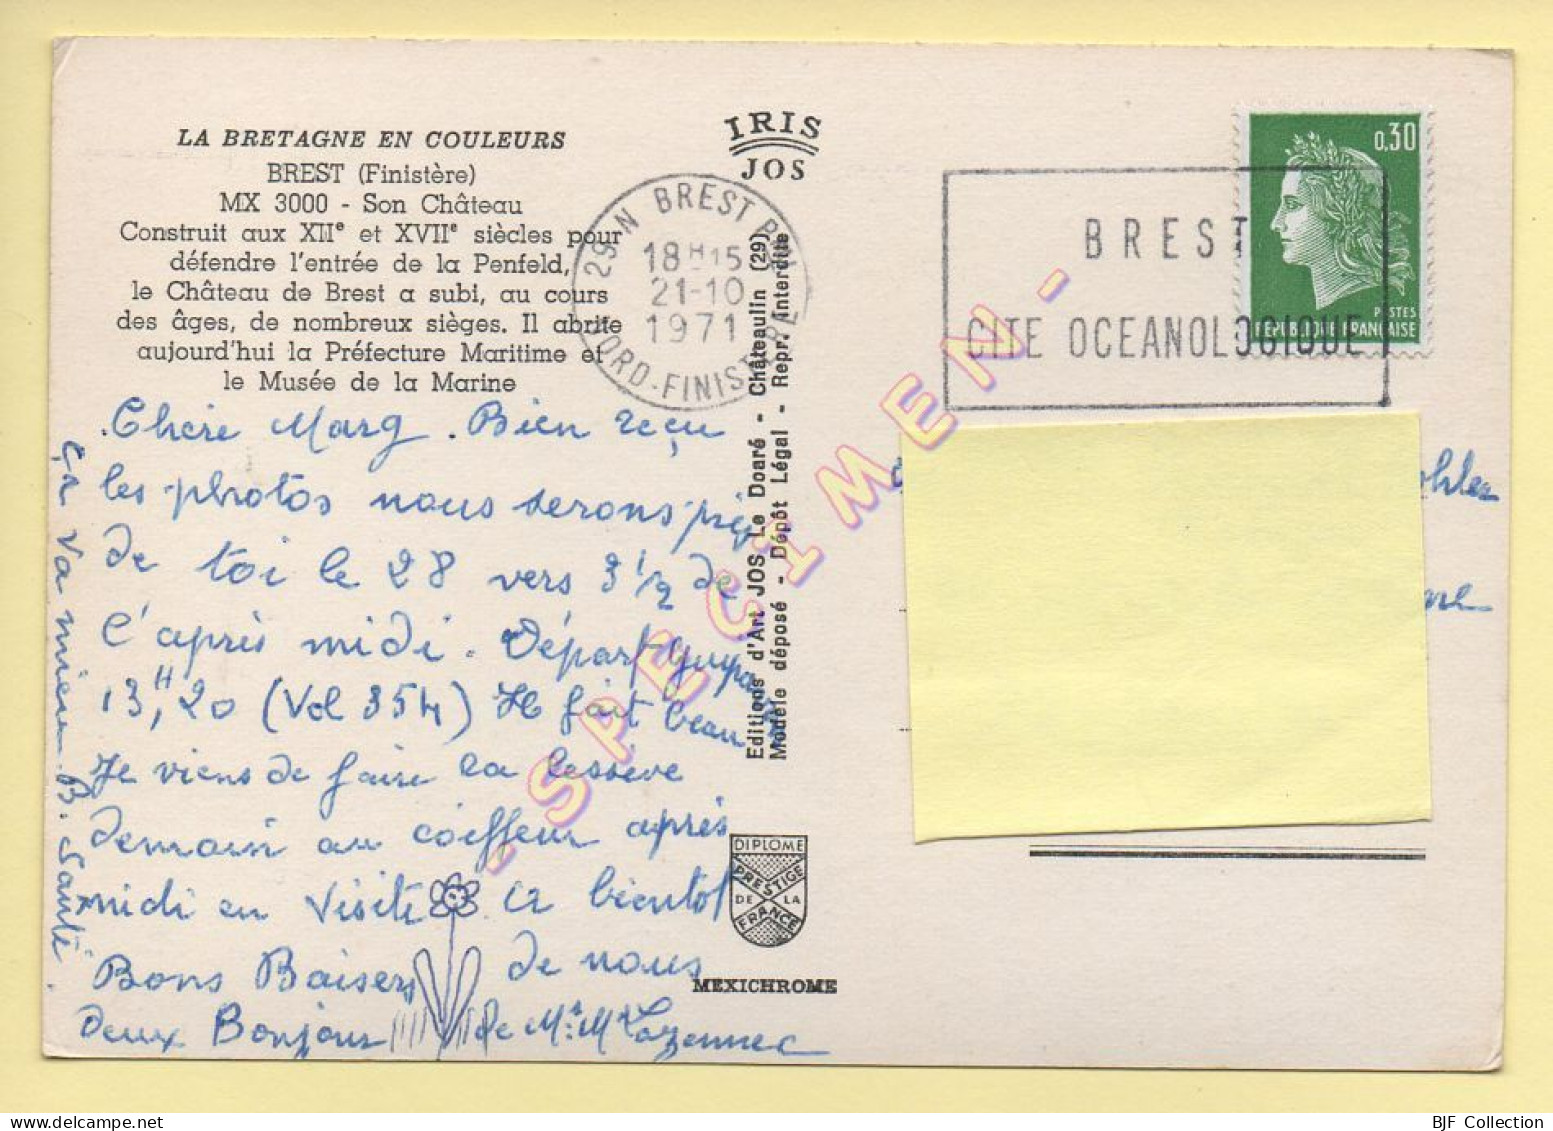 LA BRETAGNE EN COULEURS
BREST (Finistère)
MX 3000 - Son Château
Construit aux XIIe et XVIIe siècles pour
défendre l'entrée de la Penfeld,
le Château de Brest a subi, au cours
des âges, de nombreux sièges. Il abrite
aujourd'hui la Préfecture Maritime et
le Musée de la Marine
IRIS
JOS
29 N BREST
18H15
21-10
1971
NORD-FINISTERE
BREST
CITE OCEANOLOGIQUE
0,30
POSTES
REPUBLIQUE FRANÇAISE
Chère Marg. Bien reçu
les photos nous serons près
de toi le 28 vers 3 1/2 de
l'après midi. Départ Guipavas
13H,20 (Vol 354) Il fait beau
Je viens de faire la lessive
demain au coiffeur après
midi en visite. a bientot
Bons Baisers de nous
deux Bonjour de Mr Mm Lozennec
ça va mieux B. Santé
Editions d'Art JOS Le Doaré - Châteaulin (29)
Modèle déposé - Dépôt Légal - Repr. interdite
- SPECIMEN -
DIPLOME
PRESTIGE
DE LA
FRANCE
MEXICHROME
BJF Collection